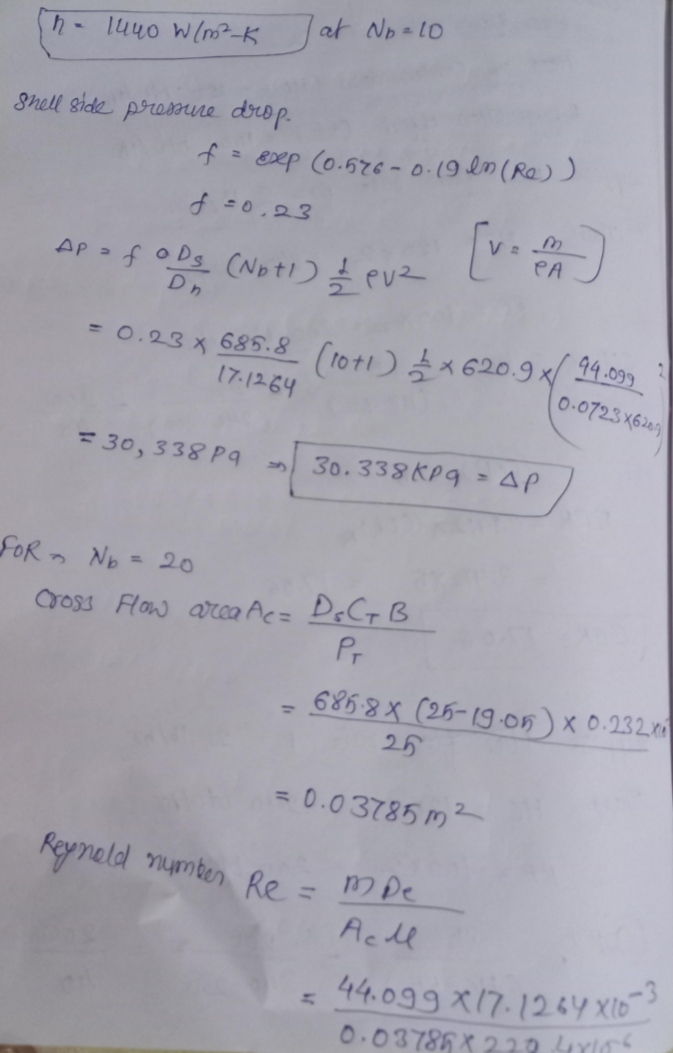 h = 1440 W/m²-K at Nb = 10
Shell side pressure drop.
f = exp (0.576 - 0.19 ln (Re))
f = 0.23
ΔP = f · Ds/Dh (Nb+1) 1/2 ρv² [v = m/ρA]
= 0.23 × 685.8/17.1264 (10+1) 1/2 × 620.9 × (44.099/0.0723×620.9)²
= 30,338 Pa ⇒ 30.338 KPa = ΔP
FOR → Nb = 20
Cross Flow area Ac = Ds CT B/PT
= 685.8 × (25-19.05) × 0.232 ×10/25
= 0.03785 m²
Reynold number Re = m De/Ac μ
= 44.099 × 17.1264 × 10⁻³/0.03785 × 229.4×10⁻⁶